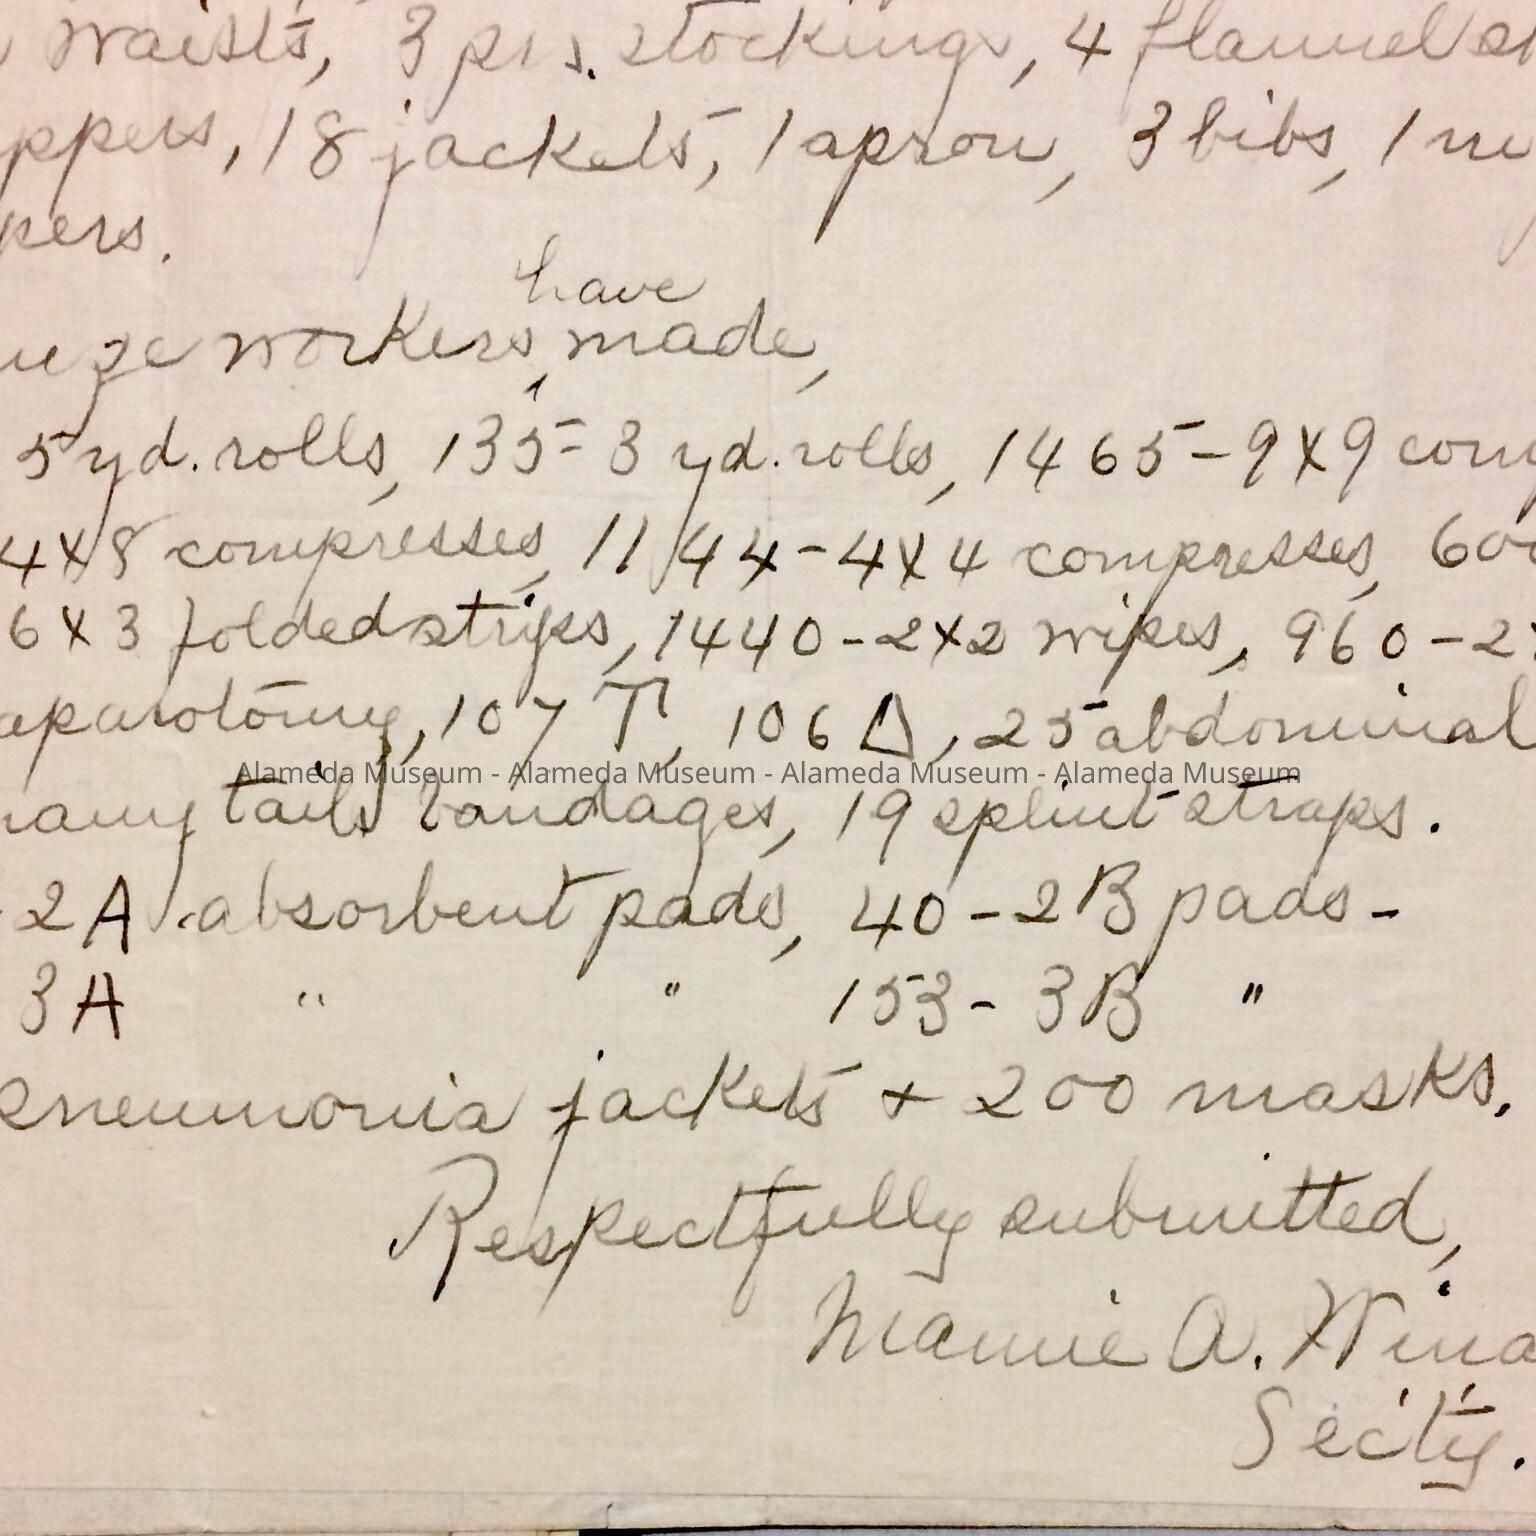 waists, 3 prs. stockings, 4 flannel
ppers, 18 jackets, 1 apron, 3 bibs, 1
pers.
have
uze workers, made,
5 yd. rolls, 135 = 3 yd. rolls, 1465 - 9X9 comp
4X8 compresses, 1144 - 4X4 compresses, 600
6X3 folded strips, 1440 - 2X2 wipes, 960 - 2X
aparotomy, 107 T, 106 △, 25 abdominal
Alameda Museum - Alameda Museum - Alameda Museum - Alameda Museum
many tails bandages, 19 splint straps.
2A absorbent pads, 40 - 2B pads -
3A " " 153 - 3B "
pneumonia jackets + 200 masks.
Respectfully submitted,
Mamie A. Wina
Sec'ty.